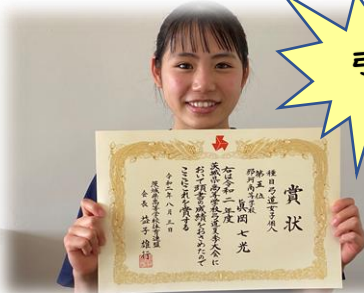 賞状
種目弓道女子個人
第五位
那珂高等学校
眞岡七光
右は令和二年度
茨城県高等学校弓道夏季大会に
おいて頭書の成績をおさめたので
ここにこれを賞する
令和二年八月三日
茨城県高等学校体育連盟
会長